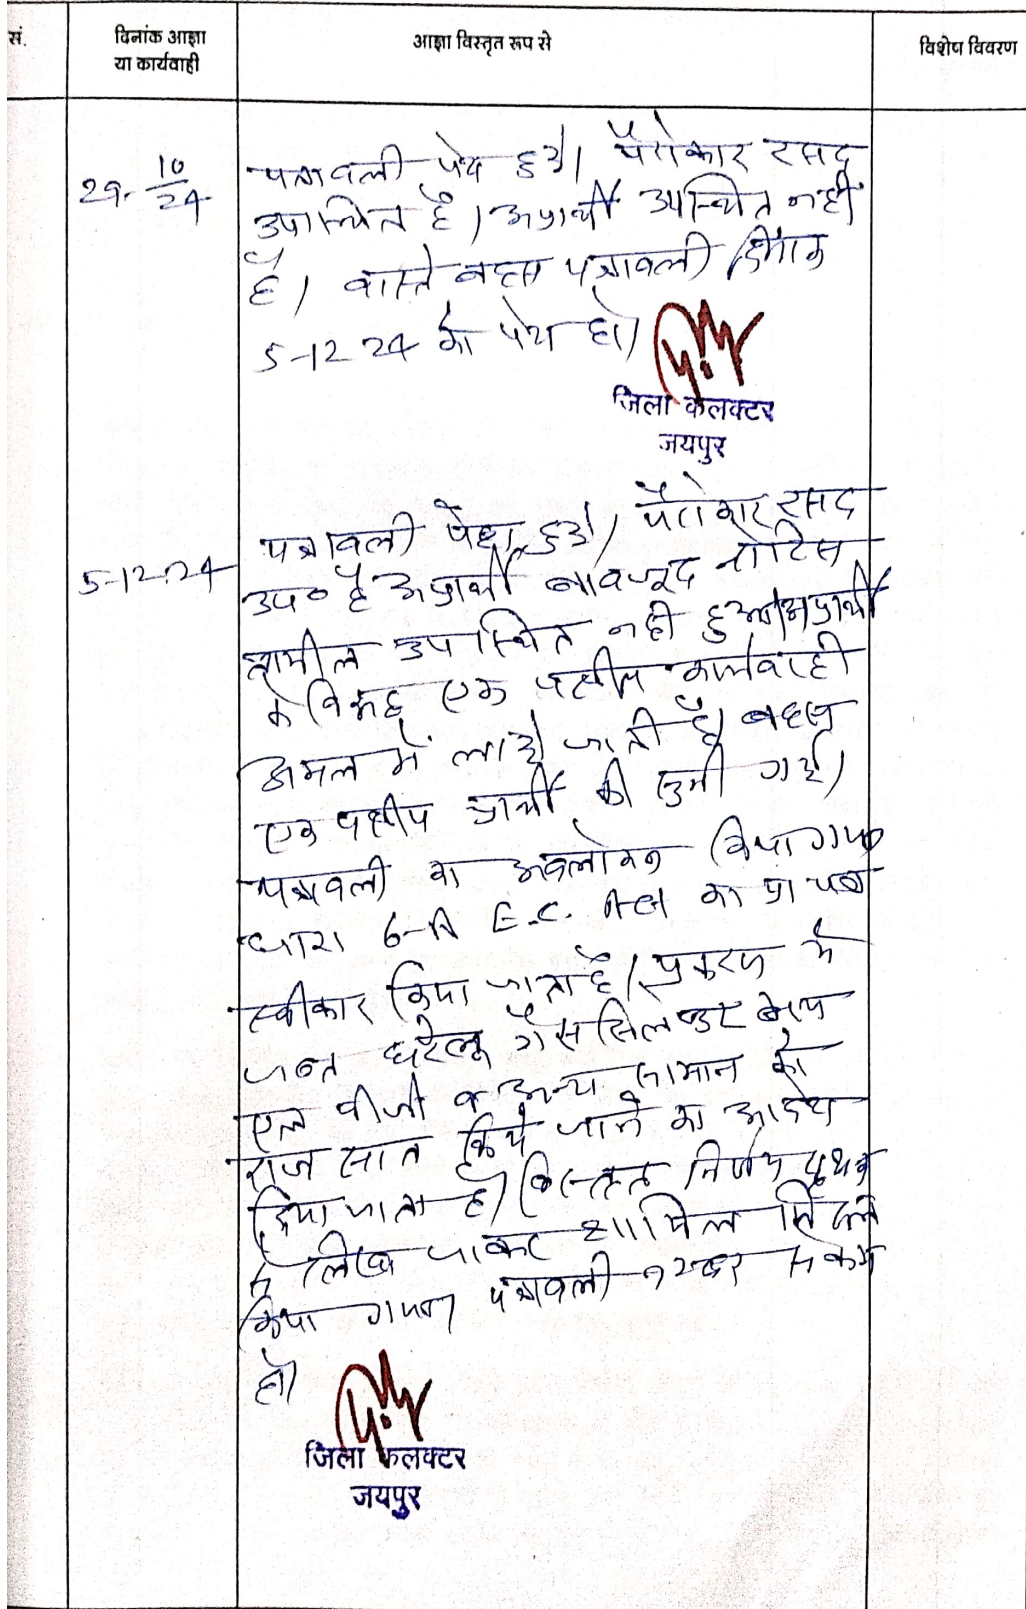 सं.
दिनांक आज्ञा
या कार्यवाही
आज्ञा विस्तृत रूप से
विशेष विवरण
29. 10/24
पत्रावली पेश हुई। पैरोकार रसद
उपस्थित है। अप्रार्थी उपस्थित नहीं
है। वास्ते बहस पत्रावली दिनांक
5-12 24 को पेश हो।
जिला कलक्टर
जयपुर
5-12-24
पत्रावली पेश हुई। पैरोकार रसद
उप० है अप्रार्थी बावजूद नोटिस
तामील उपस्थित नही हुआ। अप्रार्थी
के विरूद्ध एक पक्षीय कार्यवाही
अमल में लाई जाती है। बहस
एक पक्षीय प्रार्थी की सुनी गई।
पत्रावली का अवलोकन किया गया
धारा 6-A E.C. Act का प्रा पत्र
स्वीकार किया जाता है। प्रकरण मे
जब्त घरेलू गैस सिलेण्डर मय
एल पीजी व अन्य सामान को
राज सात किये जाने का आदेश
दिया जाता है। विस्तृत निर्णय पृथक
से लिखा जाकर शामिल मिसल
किया गया। पत्रावली नम्बर से कम
हो।
जिला कलक्टर
जयपुर